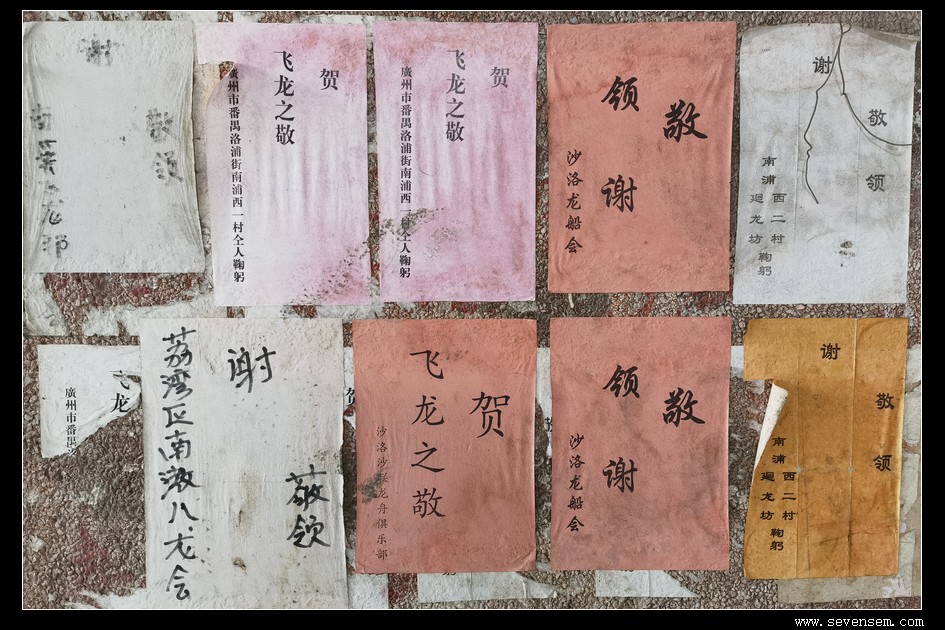 谢
敬领
贺
飞龙之敬
廣州市番禺洛浦街南浦西一村仝人鞠躬
贺
飞龙之敬
廣州市番禺洛浦街南浦西一村仝人鞠躬
敬
领谢
沙洛龙船会
敬领
谢
南浦
西二村
廻龙坊
鞠躬
飞龙
廣州市番禺
敬领
谢
荔湾区南漖八龙会
贺
贺
飞龙之敬
沙洛沙 龙舟俱乐部
敬
领谢
沙洛龙船会
敬领
谢
南浦
西二村
廻龙坊
鞠躬
www.sevensem.com